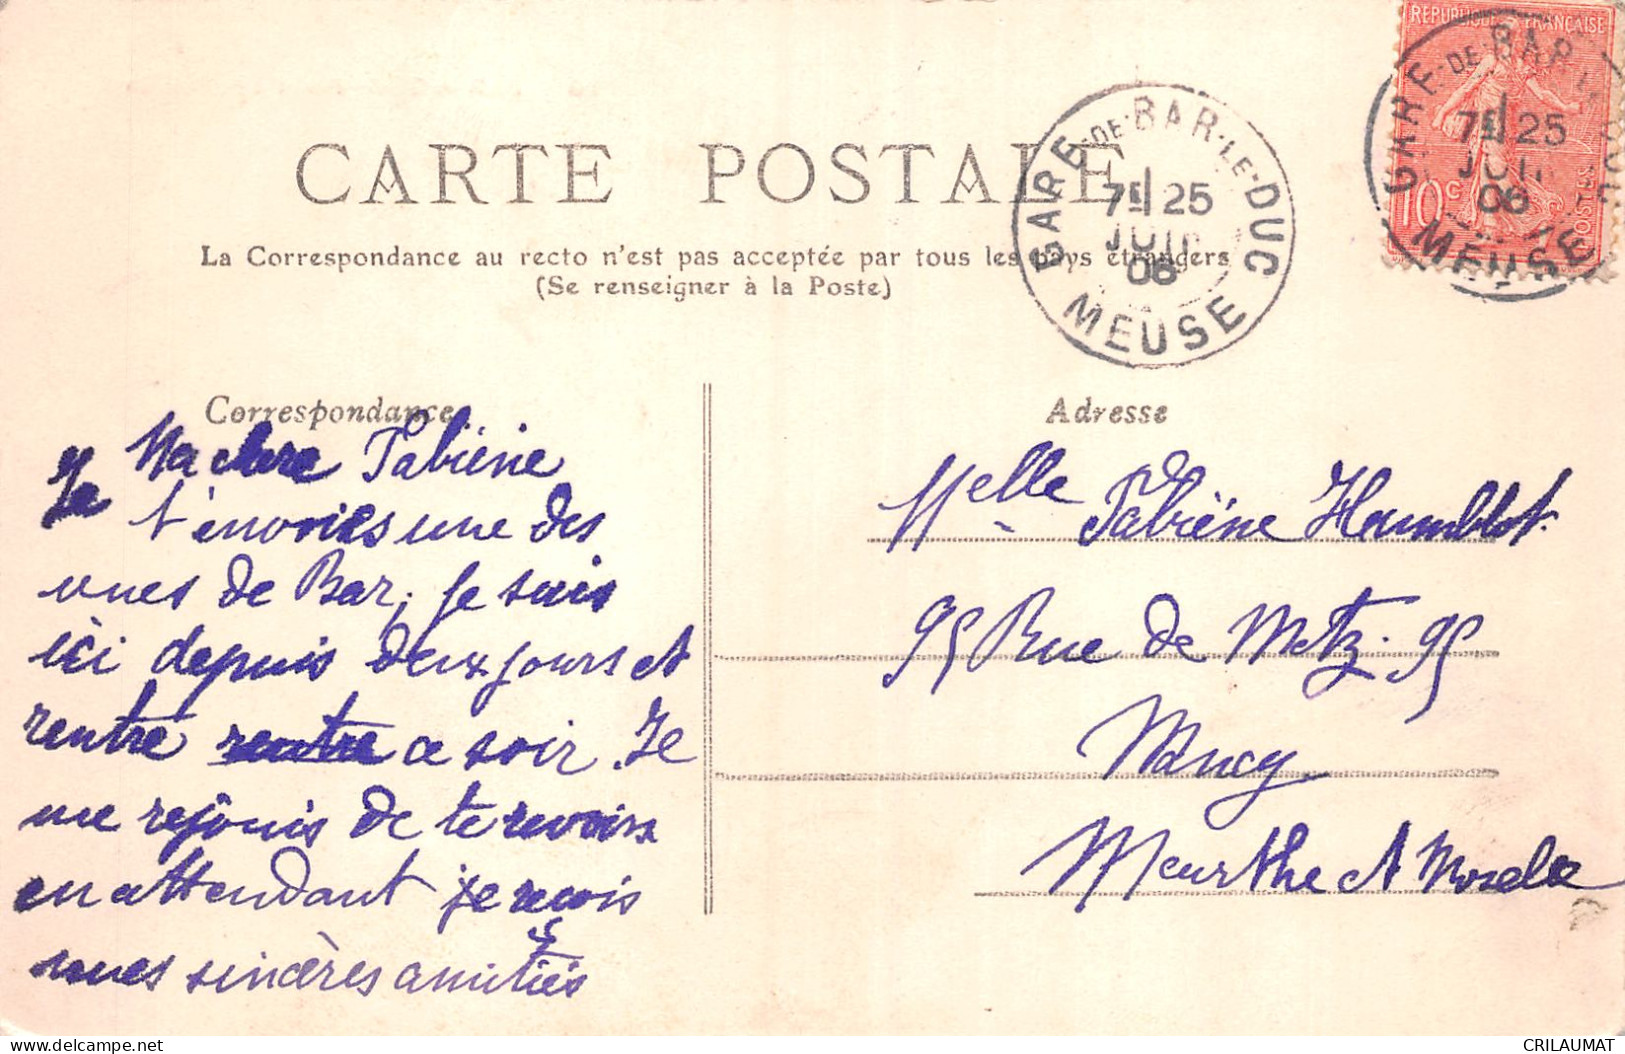 RÉPUBLIQUE FRANÇAISE
10c
POSTES
GARE-DE-BAR-LE-DUC
7E 25
JUIL
06
MEUSE
CARTE POSTALE
GARE-DE-BAR-LE-DUC
7E 25
JUIL
06
MEUSE
La Correspondance au recto n'est pas acceptée par tous les pays étrangers
(Se renseigner à la Poste)
Correspondance
Adresse
Ma chere Fabiène
Je t'envoies une des
vues de Bar, je suis
ici depuis deux jours et
rentre rentre ce soir. Je
me rejouis de te revoir
en attendant je reçois
mes sincères amitiés
Melle Fabiène Humblot
95 Rue de Metz. 95
Nancy
Meurthe et Moselle
CRILAUMAT